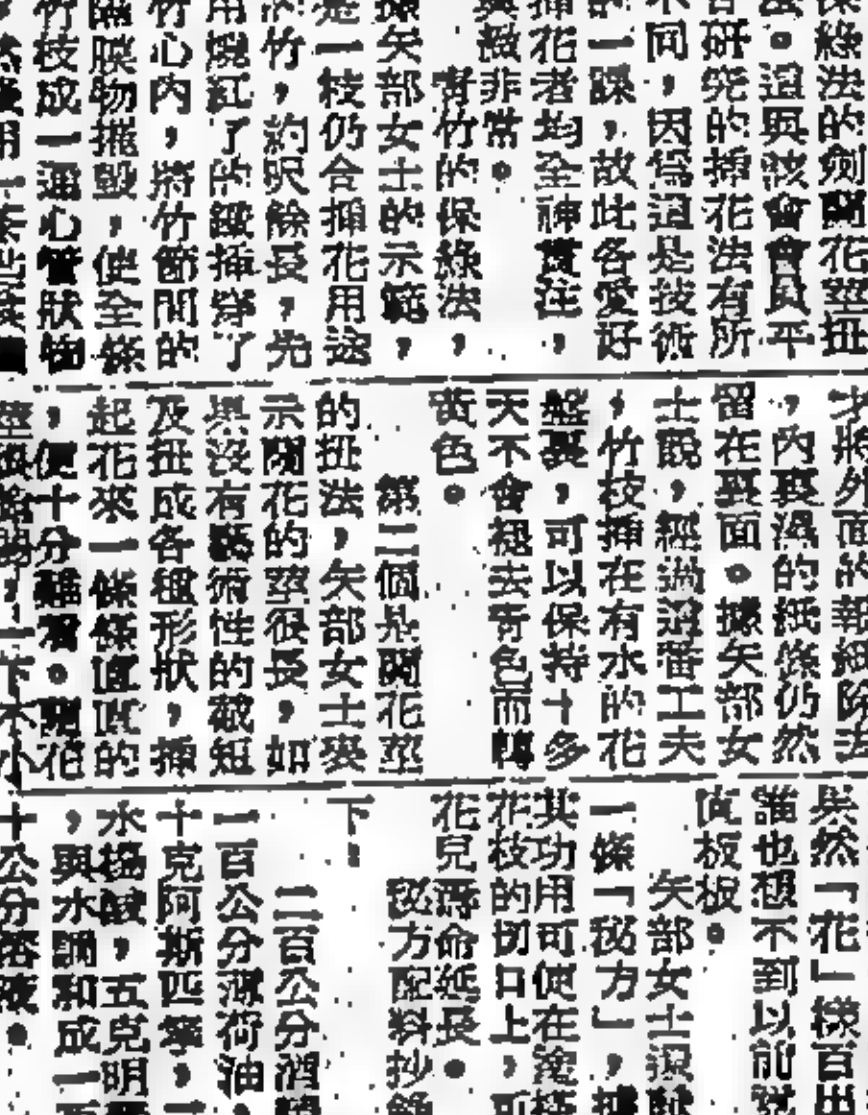 保綠法的劍蘭花莖扭
法。這與該會會員平
日研究的插花法有所
不同,因為這是技術
的一課,故此各愛好
插花者均全神貫注,
興緻非常。
青竹的保綠法,
據矢部女士的示範,
是一枝仍合插花用途
的竹,約呎餘長,先
用燒紅了的鐵插穿了
竹心內,將竹節間的
隔膜物摧毀,使全條
竹枝成一通心管狀物
才將外面的
,內裏濕的紙條仍然
留在裏面。據矢部女
士說,經過這番工夫
,竹枝插在有水的花
盤裏,可以保持十多
天不會褪去青色而轉
黃色。
第二個是蘭花莖
的扭法,矢部女士表
示蘭花的莖很長,如
果沒有藝術性的截短
及扭成各種形狀,插
起花來一條條直直的
,便十分難看。蘭花
一下不小
果然「花」樣百出
誰也想不到以前
直板板。
矢部女士還
一條「秘方」,據
其功用可使在
花枝的切口上,可
花兒壽命延長。
秘方配料抄錄
下:
二百公分酒
一百公分薄荷油
十克阿斯匹寧,一
水楊酸,五克明
,與水調和成一
十公分溶液。